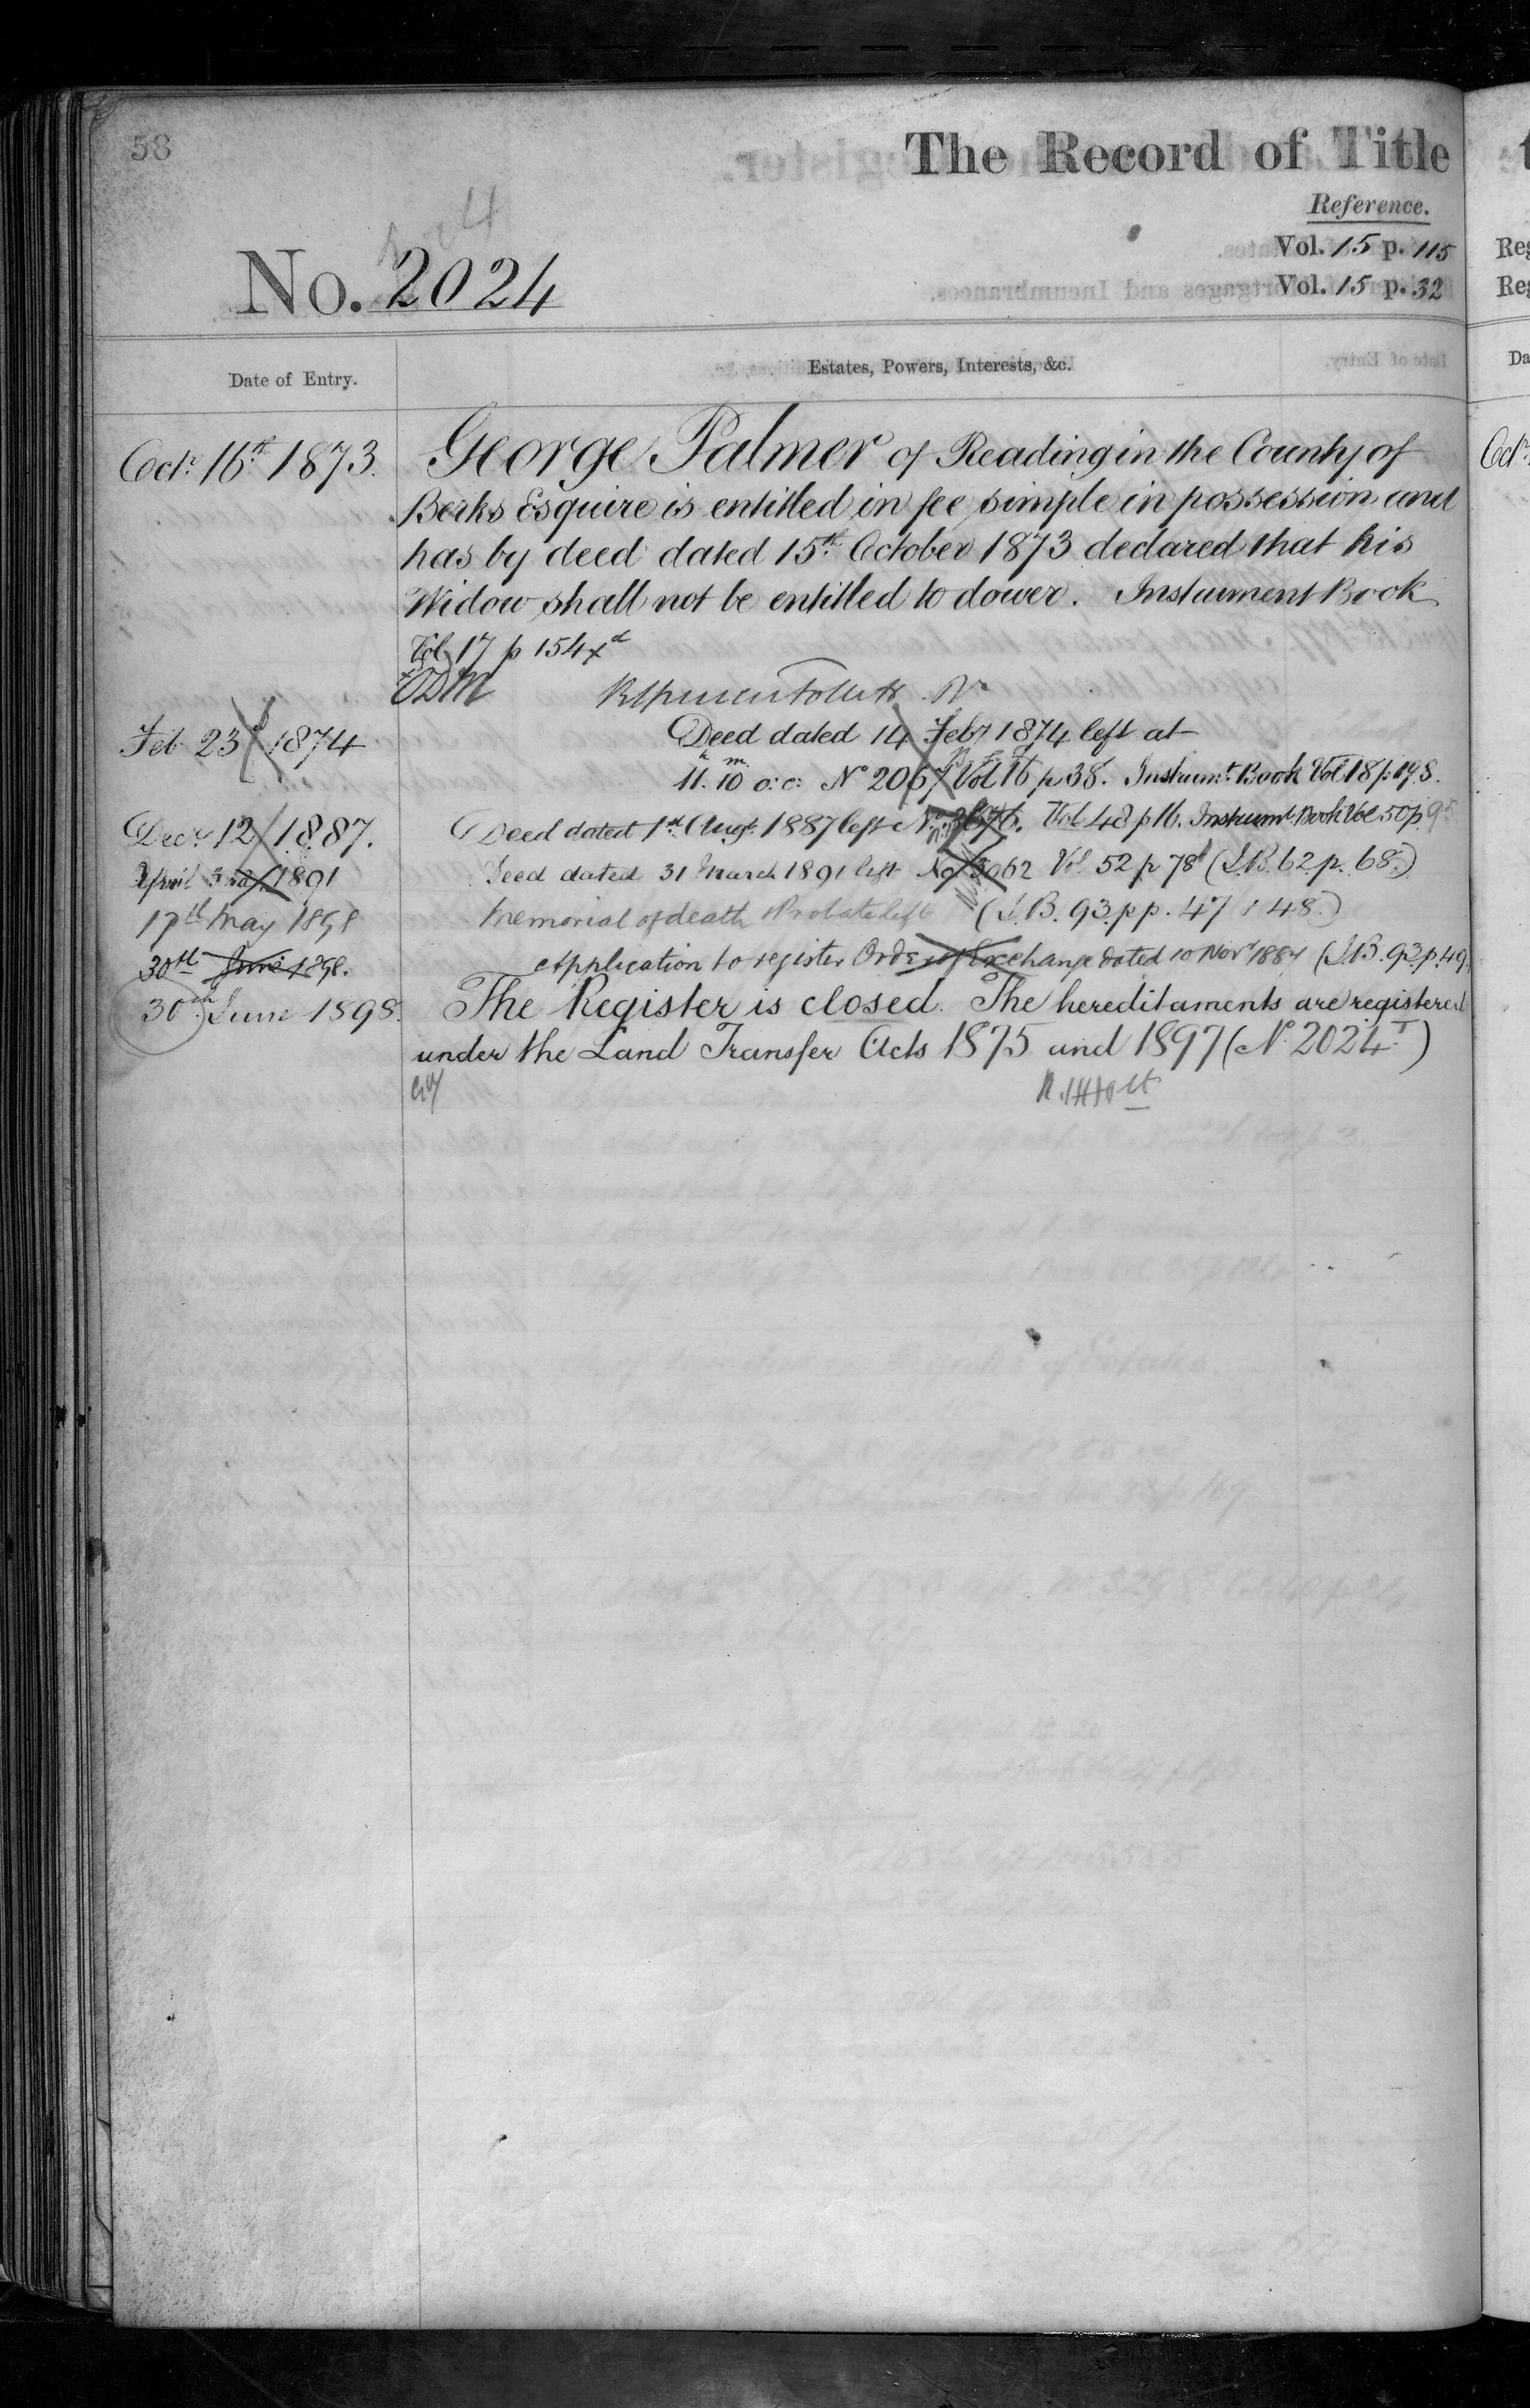 58
The Record of Title
Reference.
No. 2024
Vol. 15 p. 115
Vol. 15 p. 32
Date of Entry.
Estates, Powers, Interests, &c.
Octr. 16th 1873.
George Palmer of Reading in the County of
Berks Esquire is entitled in fee simple in possession and
has by deed dated 15th October 1873 declared that his
Widow shall not be entitled to dower. Instrument Book
Vol 17 p 154
Feb 23d 1874
Deed dated 14 Feby 1874 left at
11h. 10m. o:c: No 2067 Vol 16 p 38. Instrumt. Book Vol 18 p. 198.
Decr 12 1887.
Deed dated 1st Augt. 1887 left Vol 48 p 16. Instrumt Book Vol 50 p. 95
April 3 1891
Deed dated 31 March 1891 left No 3062 Vol. 52 p 78 (I.B. 62 p. 68.)
17th May 1898
Memorial of death & Probate left (I.B. 93. pp. 47 & 48.)
30th June 1898.
Application to register Order of Exchange dated 10 Novr 1884 (I.B. 93. p. 49)
30th June 1898.
The Register is closed. The hereditaments are registered
under the Land Transfer Acts 1875 and 1897 (No. 2024 I)
Reg
Reg
Da
Octr.